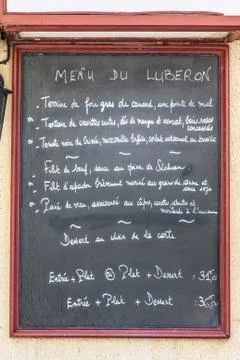 MENU DU LUBERON
- Terrine de foie gras de canard, une pointe de miel
- Tartare de crevettes cuites, dés de mangue et avocat, baies roses
concassées
- Tomate noire de Crimée, mozzarella buffala, sorbet artisanal au basilic
~
- Filet de bœuf, sauce au poivre de Sichuan
- Filet d'espadon
sauce soja
- Pavé de veau, assaisonné aux câpres,
moutarde à l'ancienne
~ ~ ~
Dessert au choix de la carte
Entrée + Plat @ Plat + Dessert :
Entrée + Plat + Dessert :